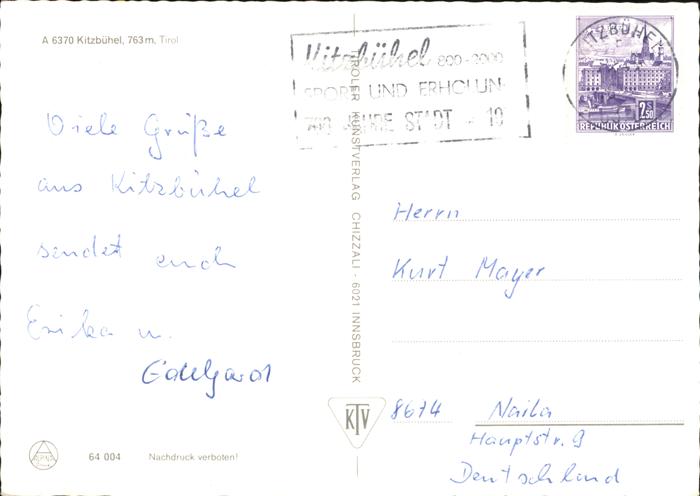 A 6370 Kitzbühel, 763 m, Tirol
Viele Grüße
aus Kitzbühel
sendet euch
Erika u.
64 004 Nachdruck verboten!
TIROLER KUNSTVERLAG CHIZZALI - 6021 INNSBRUCK
KTV
Kitzbühel 800-2000
SPORT UND ERHOLUN
700 JAHRE STADT - 19
KITZBÜHEL
2.50
S
REPUBLIK ÖSTERREICH
Herrn
Kurt Mayer
8674 Naila
Hauptstr. 9
Deutschland